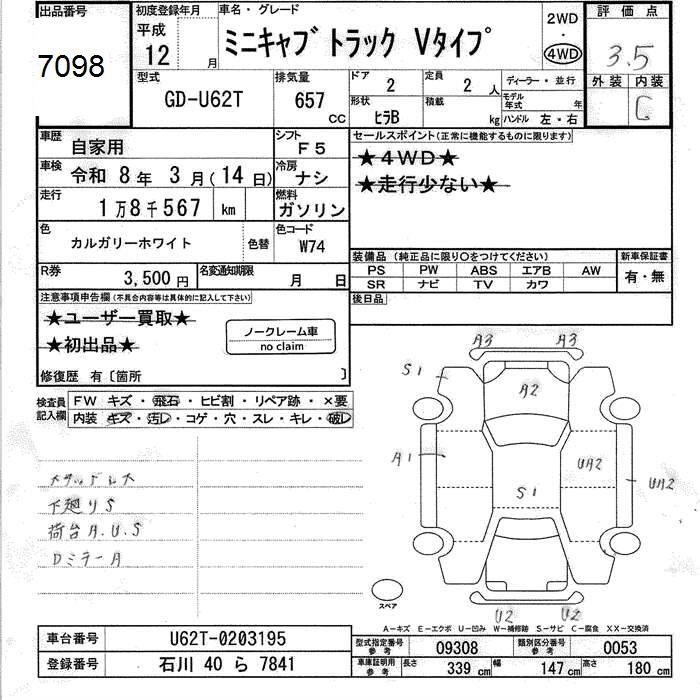 出品番号
7098
初度登録年月
平成
12 月
車名・グレード
ミニキャブ トラック Vタイプ
2WD
・
4WD
評価点
3.5
型式
GD-U62T
排気量
657 CC
ドア 2
定員 2 人
ディーラー・並行
形状 ヒラB
積載 kg
モデル年式 年
ハンドル 左・右
外装 内装
C
車歴 自家用
シフト F5
セールスポイント(正常に機能するものに限ります)
★4WD★
★走行少ない★
車検 令和 8年 3月(14日)
冷房 ナシ
走行 1万8千567 km
燃料 ガソリン
色 カルガリーホワイト 色替
色コード W74
装備品(純正品に限り○をつけてください)
新車保証書
PS PW ABS エアB AW
SR ナビ TV カワ
有・無
R券 3,500円
名変通知期限 月 日
後日品
注意事項申告欄(不具合内容等は具体的に記入して下さい)
★ユーザー買取★
★初出品★
ノークレーム車
no claim
修復歴 有〔箇所 〕
検査員記入欄
FW キズ・飛石・ヒビ割・リペア跡・×要
内装 キズ・汚レ・コゲ・穴・スレ・キレ・破レ
下廻りS
荷台A.U.S
DミラーA
A3 A3
S1
A2
A1
UA2
UA2
S1
U2 U2
スペア
A−キズ E−エクボ U−凹み W−補修跡 S−サビ C−腐食 XX−交換済
車台番号 U62T-0203195
登録番号 石川 40 ら 7841
型式指定番号 参考 09308
類別区分番号 参考 0053
車庫証明用 参考 長さ 339 cm 幅 147 cm 高さ 180 cm